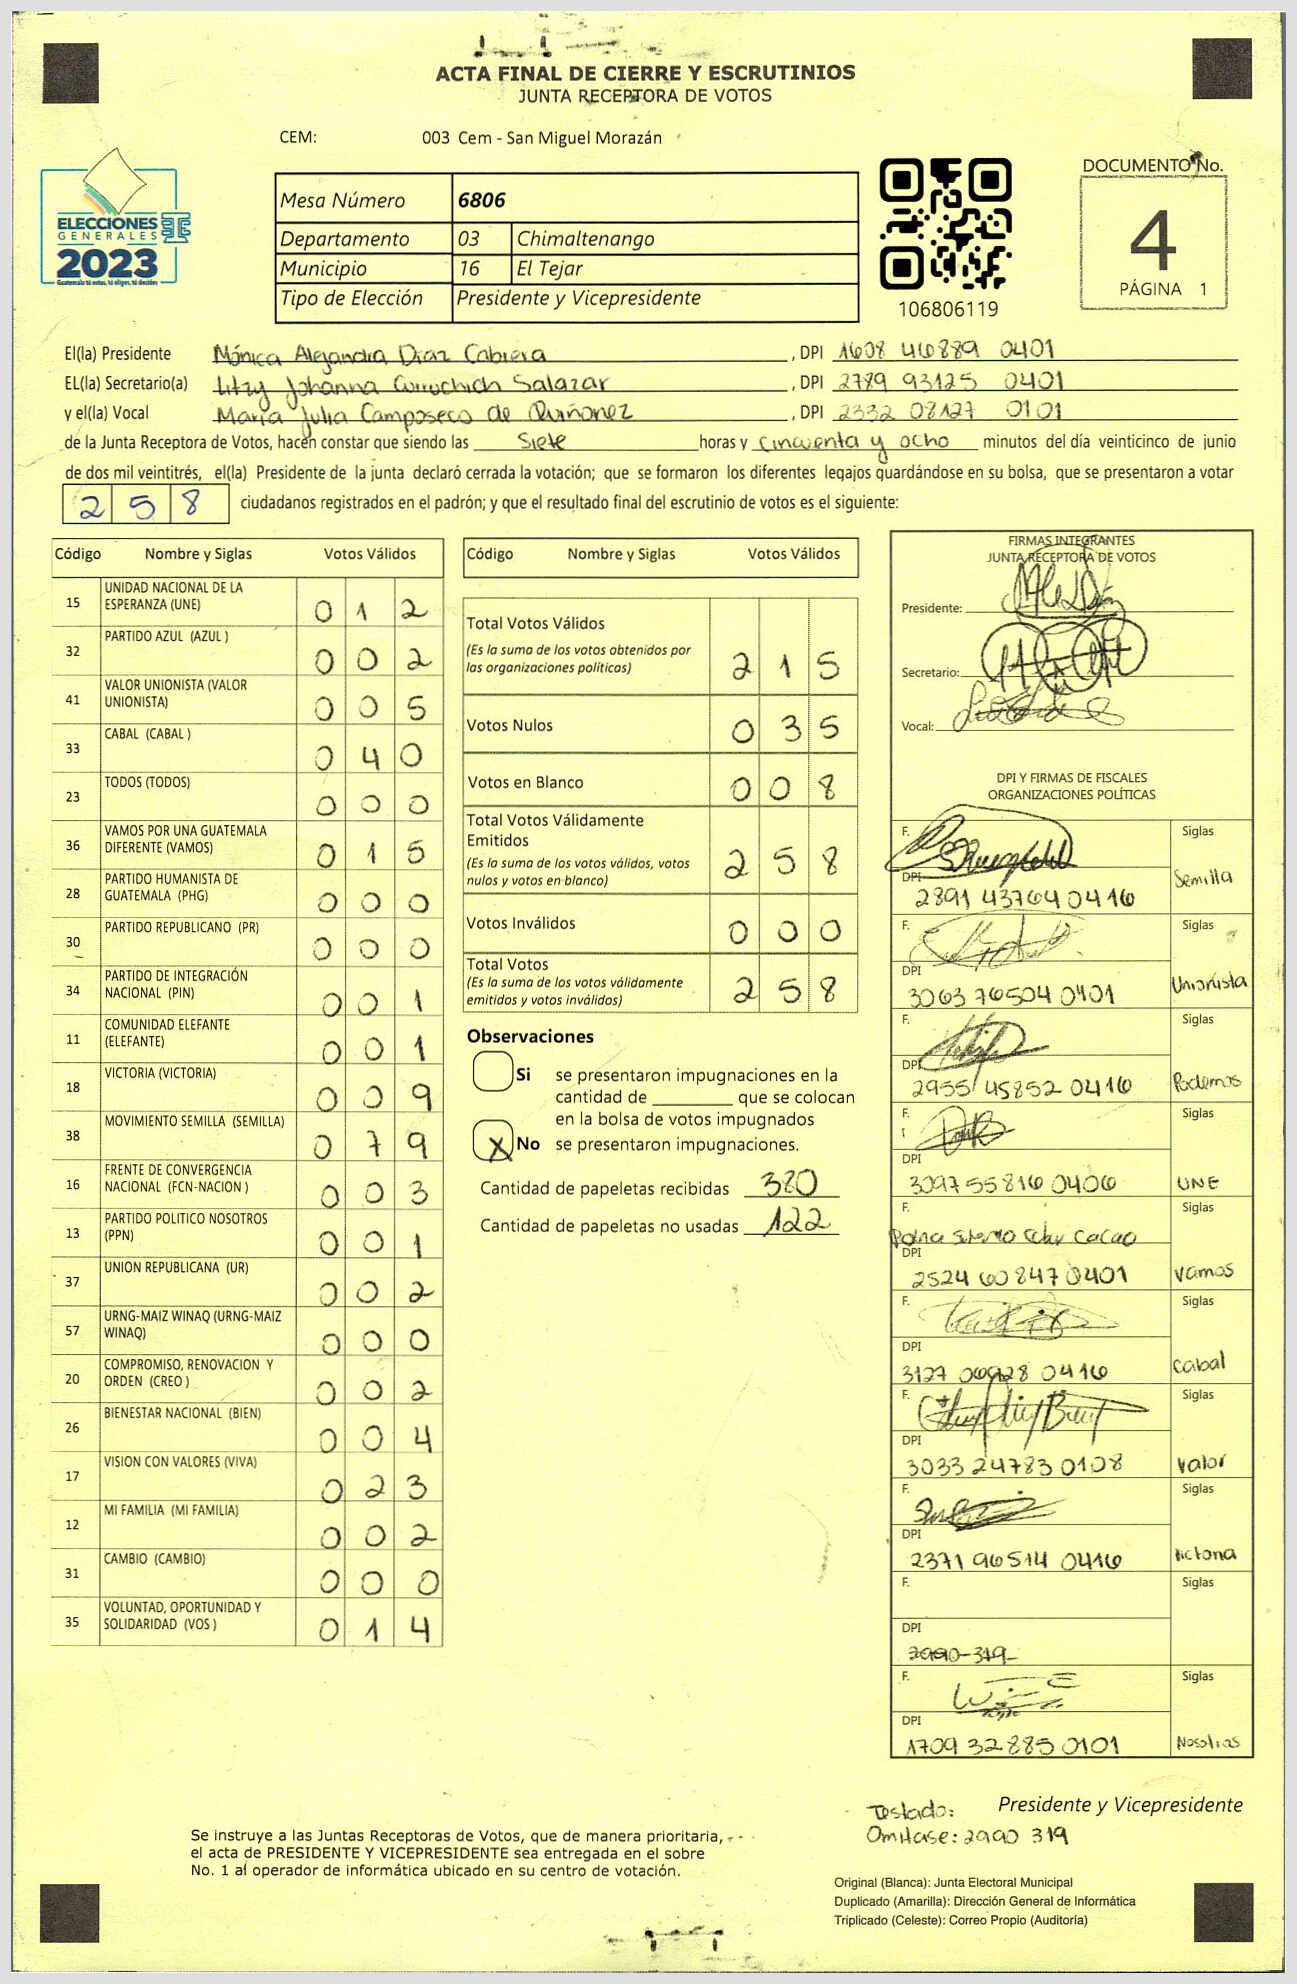 ACTA FINAL DE CIERRE Y ESCRUTINIOS
JUNTA RECEPTORA DE VOTOS
CEM: 003 Cem - San Miguel Morazán
ELECCIONES
GENERALES
2023
Guatemala tú votas, tú eliges, tú decides
Mesa Número 6806
Departamento 03 Chimaltenango
Municipio 16 El Tejar
Tipo de Elección Presidente y Vicepresidente
106806119
DOCUMENTO No.
4
PÁGINA 1
El(la) Presidente Mónica Alejandra Díaz Cabrera, DPI 1608 46889 0401
EL(la) Secretario(a) Litzy Johanna Curuchich Salazar, DPI 2789 93125 0401
y el(la) Vocal María Julia Camposeco de Quiñonez, DPI 2332 08127 0101
de la Junta Receptora de Votos, hacen constar que siendo las Siete horas y cincuenta y ocho minutos del día veinticinco de junio
de dos mil veintitrés, el(la) Presidente de la junta declaró cerrada la votación; que se formaron los diferentes legajos guardándose en su bolsa, que se presentaron a votar
258 ciudadanos registrados en el padrón; y que el resultado final del escrutinio de votos es el siguiente:
Código Nombre y Siglas Votos Válidos
15 UNIDAD NACIONAL DE LA ESPERANZA (UNE) 0 1 2
32 PARTIDO AZUL (AZUL ) 0 0 2
41 VALOR UNIONISTA (VALOR UNIONISTA) 0 0 5
33 CABAL (CABAL ) 0 4 0
23 TODOS (TODOS) 0 0 0
36 VAMOS POR UNA GUATEMALA DIFERENTE (VAMOS) 0 1 5
28 PARTIDO HUMANISTA DE GUATEMALA (PHG) 0 0 0
30 PARTIDO REPUBLICANO (PR) 0 0 0
34 PARTIDO DE INTEGRACIÓN NACIONAL (PIN) 0 0 1
11 COMUNIDAD ELEFANTE (ELEFANTE) 0 0 1
18 VICTORIA (VICTORIA) 0 0 9
38 MOVIMIENTO SEMILLA (SEMILLA) 0 7 9
16 FRENTE DE CONVERGENCIA NACIONAL (FCN-NACION ) 0 0 3
13 PARTIDO POLITICO NOSOTROS (PPN) 0 0 1
37 UNION REPUBLICANA (UR) 0 0 2
57 URNG-MAIZ WINAQ (URNG-MAIZ WINAQ) 0 0 0
20 COMPROMISO, RENOVACION Y ORDEN (CREO ) 0 0 2
26 BIENESTAR NACIONAL (BIEN) 0 0 4
17 VISION CON VALORES (VIVA) 0 2 3
12 MI FAMILIA (MI FAMILIA) 0 0 2
31 CAMBIO (CAMBIO) 0 0 0
35 VOLUNTAD, OPORTUNIDAD Y SOLIDARIDAD (VOS ) 0 1 4
Código Nombre y Siglas Votos Válidos
Total Votos Válidos
(Es la suma de los votos obtenidos por
las organizaciones políticas) 2 1 5
Votos Nulos 0 3 5
Votos en Blanco 0 0 8
Total Votos Válidamente
Emitidos
(Es la suma de los votos válidos, votos
nulos y votos en blanco) 2 5 8
Votos Inválidos 0 0 0
Total Votos
(Es la suma de los votos válidamente
emitidos y votos inválidos) 2 5 8
Observaciones
Si se presentaron impugnaciones en la
cantidad de ________ que se colocan
en la bolsa de votos impugnados
X No se presentaron impugnaciones.
Cantidad de papeletas recibidas 380
Cantidad de papeletas no usadas 122
FIRMAS INTEGRANTES
JUNTA RECEPTORA DE VOTOS
Presidente:
Secretario:
Vocal:
DPI Y FIRMAS DE FISCALES
ORGANIZACIONES POLÍTICAS
F. Siglas
DPI Semilla
2891 43764 0416
F. Siglas
DPI Unionista
3063 76504 0401
F. Siglas
DPI Podemos
2955 45852 0416
F. Siglas
DPI
3097 55816 0406 UNE
F. Siglas
DPI
2524 60847 0401 Vamos
F. Siglas
DPI
3127 06928 0416 Cabal
F. Siglas
DPI
3033 24783 0108 Valor
F. Siglas
DPI
2371 96514 0416 Victoria
F. Siglas
DPI
2990-319-
F. Siglas
DPI
1709 32885 0101 Nosotros
Presidente y Vicepresidente
Testado:
Omitase: 2990 319
Se instruye a las Juntas Receptoras de Votos, que de manera prioritaria,
el acta de PRESIDENTE Y VICEPRESIDENTE sea entregada en el sobre
No. 1 al operador de informática ubicado en su centro de votación.
Original (Blanca): Junta Electoral Municipal
Duplicado (Amarilla): Dirección General de Informática
Triplicado (Celeste): Correo Propio (Auditoría)